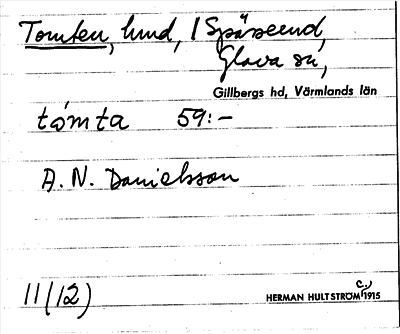 Tomten, hmd, / Spässerud,
Glava sn,
Gillbergs hd, Värmlands län
tómta 59:-
A. N. Danielsson
11(12)
HERMAN HULTSTRÖM c,/1915